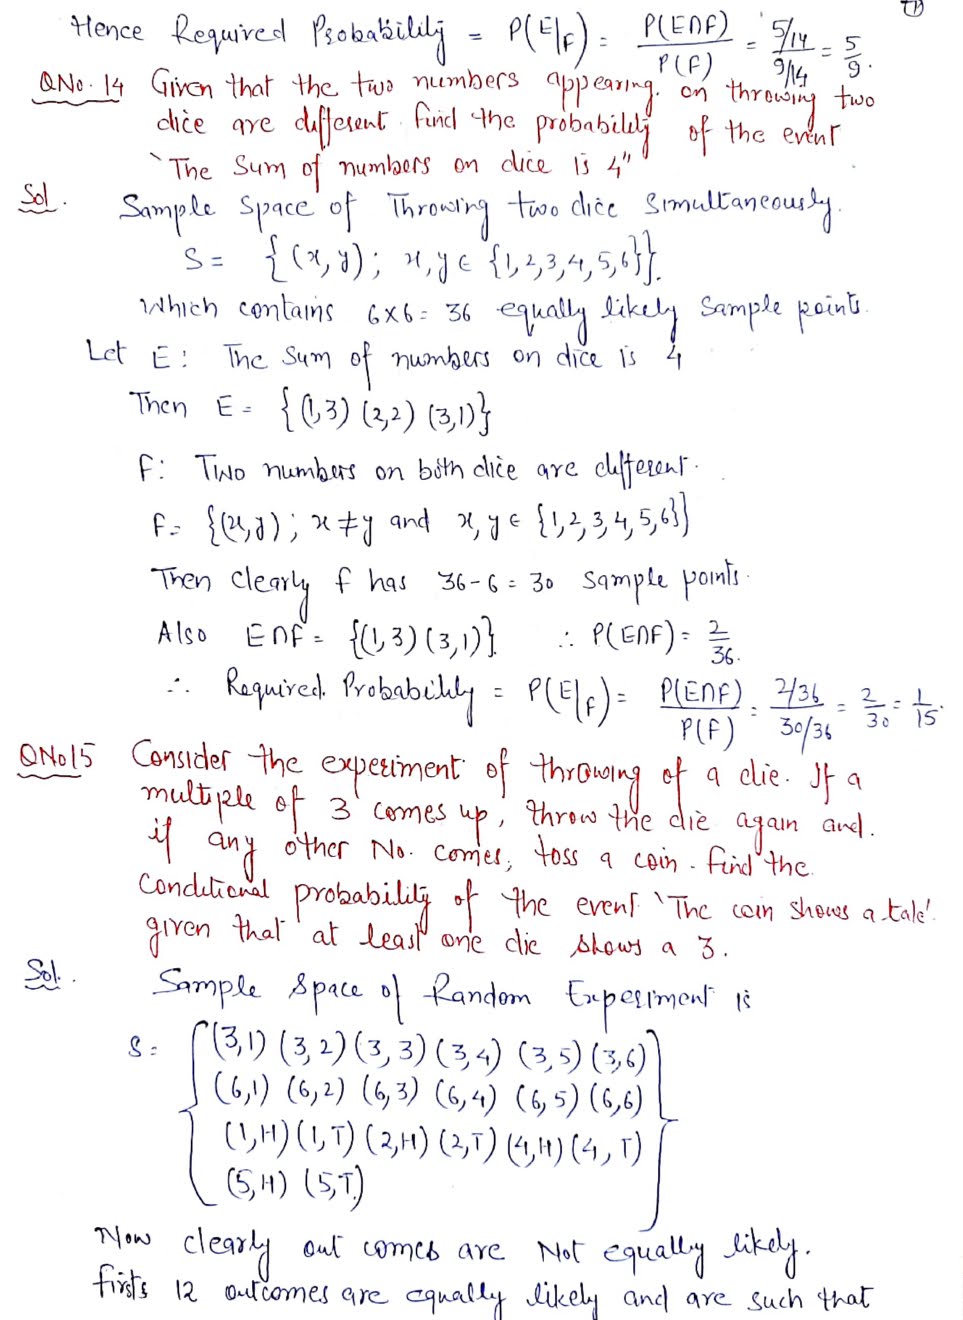 ①
Hence Required Probability = P(E|F) = P(E∩F)/P(F) = (5/14)/(9/14) = 5/9.
QNo. 14 Given that the two numbers appearing. on throwing two
dice are different. find the probability of the event
"The Sum of numbers on dice is 4"
Sol. Sample Space of Throwing two dice Simultaneously.
S = {(x, y); x, y ∈ {1,2,3,4,5,6}}.
Which contains 6×6 = 36 equally likely Sample points.
Let E: The Sum of numbers on dice is 4
Then E = {(1,3) (2,2) (3,1)}
F: Two numbers on both dice are different.
F = {(x,y); x ≠ y and x, y ∈ {1,2,3,4,5,6}}
Then clearly F has 36-6 = 30 sample points.
Also E∩F = {(1,3) (3,1)}. ∴ P(E∩F) = 2/36.
∴ Required. Probability = P(E|F) = P(E∩F)/P(F) = (2/36)/(30/36) = 2/30 = 1/15.
QNo15 Consider the experiment of throwing of a die. If a
multiple of 3 comes up, throw the die again and.
if any other No. comes, toss a coin. find the
Conditional probability of the event 'The coin shows a tale'
given that at least one die shows a 3.
Sol. Sample Space of Random Experiment is
S = {(3,1) (3,2) (3,3) (3,4) (3,5) (3,6)
(6,1) (6,2) (6,3) (6,4) (6,5) (6,6)
(1,H) (1,T) (2,H) (2,T) (4,H) (4,T)
(5,H) (5,T)}
Now clearly out comes are Not equally likely.
firsts 12 outcomes are equally likely and are such that